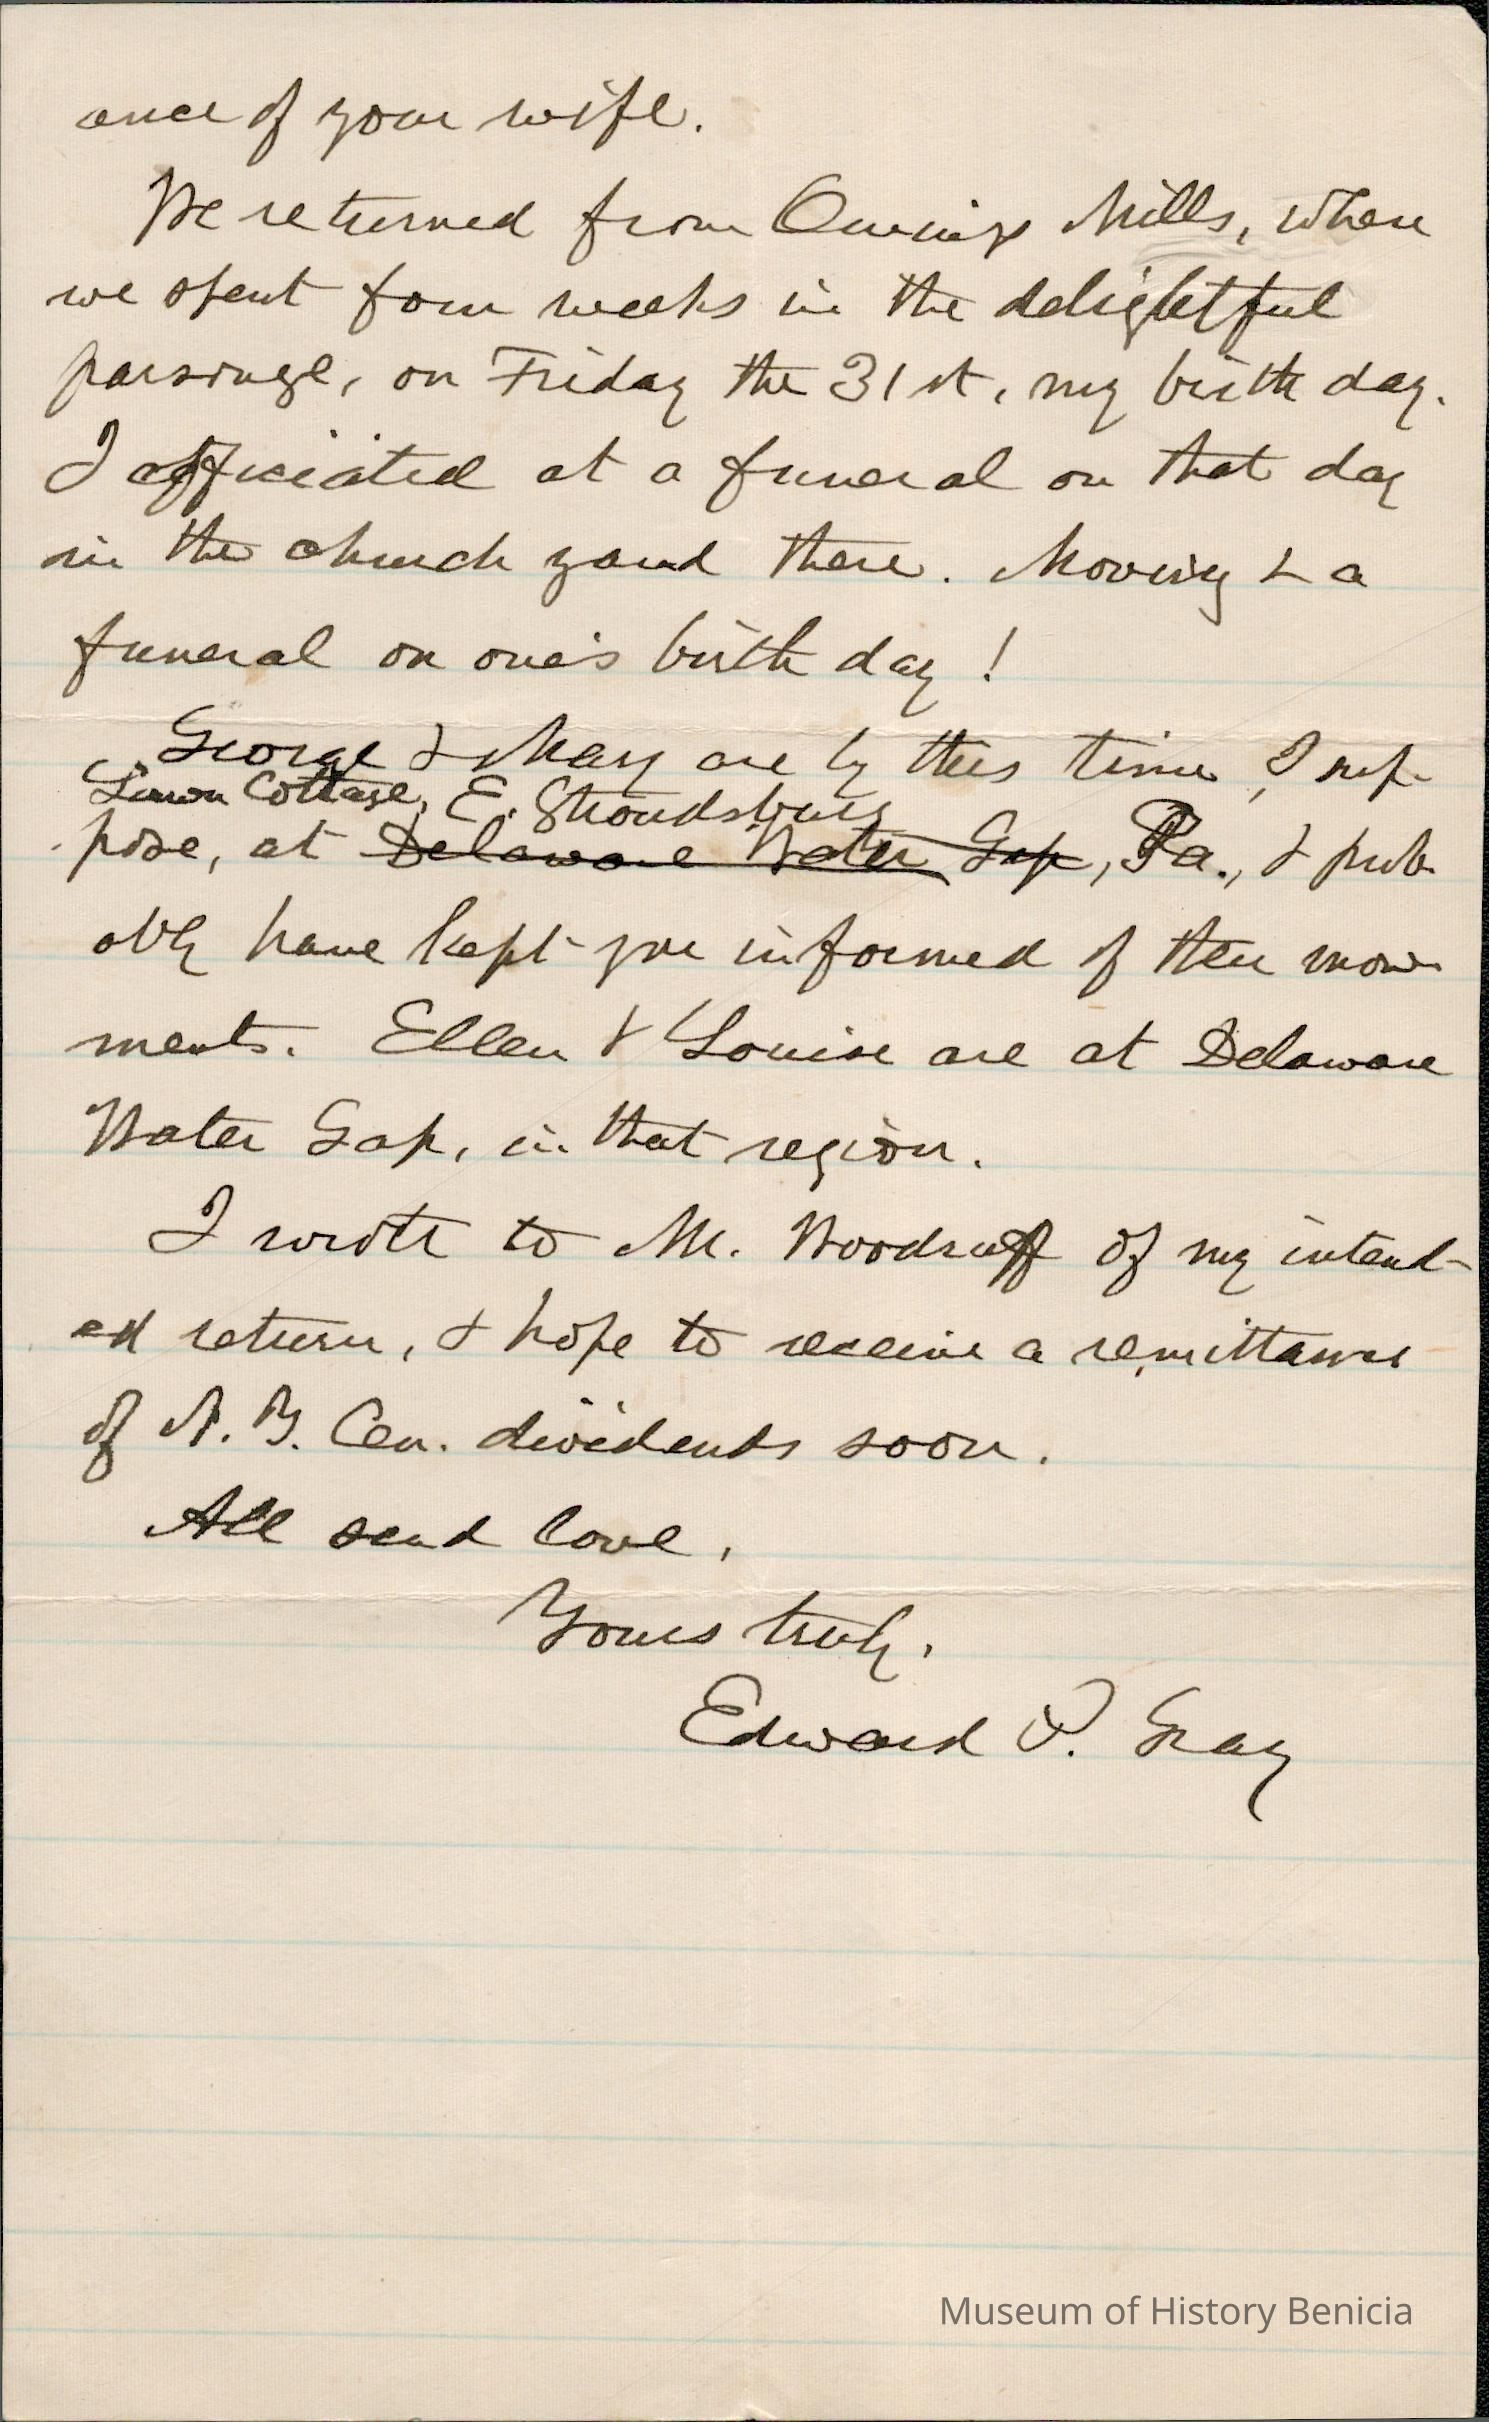 ance of your wife.
We returned from Owings Mills, where
we spent four weeks in the delightful
parsonage, on Friday the 31st, my birth day.
I officiated at a funeral on that day
in the church yard there. Moving & a
funeral on one's birth day!
George & Mary are by this time, I sup-
Lawn Cottage, E. Stroudsburg
pose, at Delaware Water Gap, Pa., & prob-
ably have kept you informed of their move-
ments. Ellen & Louise are at Delaware
Water Gap, in that region.
I wrote to Mr. Woodruff of my intend-
ed return, & hope to receive a remittance
of N. Y. Cen. dividends soon.
All send love,
Yours truly,
Edward P. Gray
Museum of History Benicia